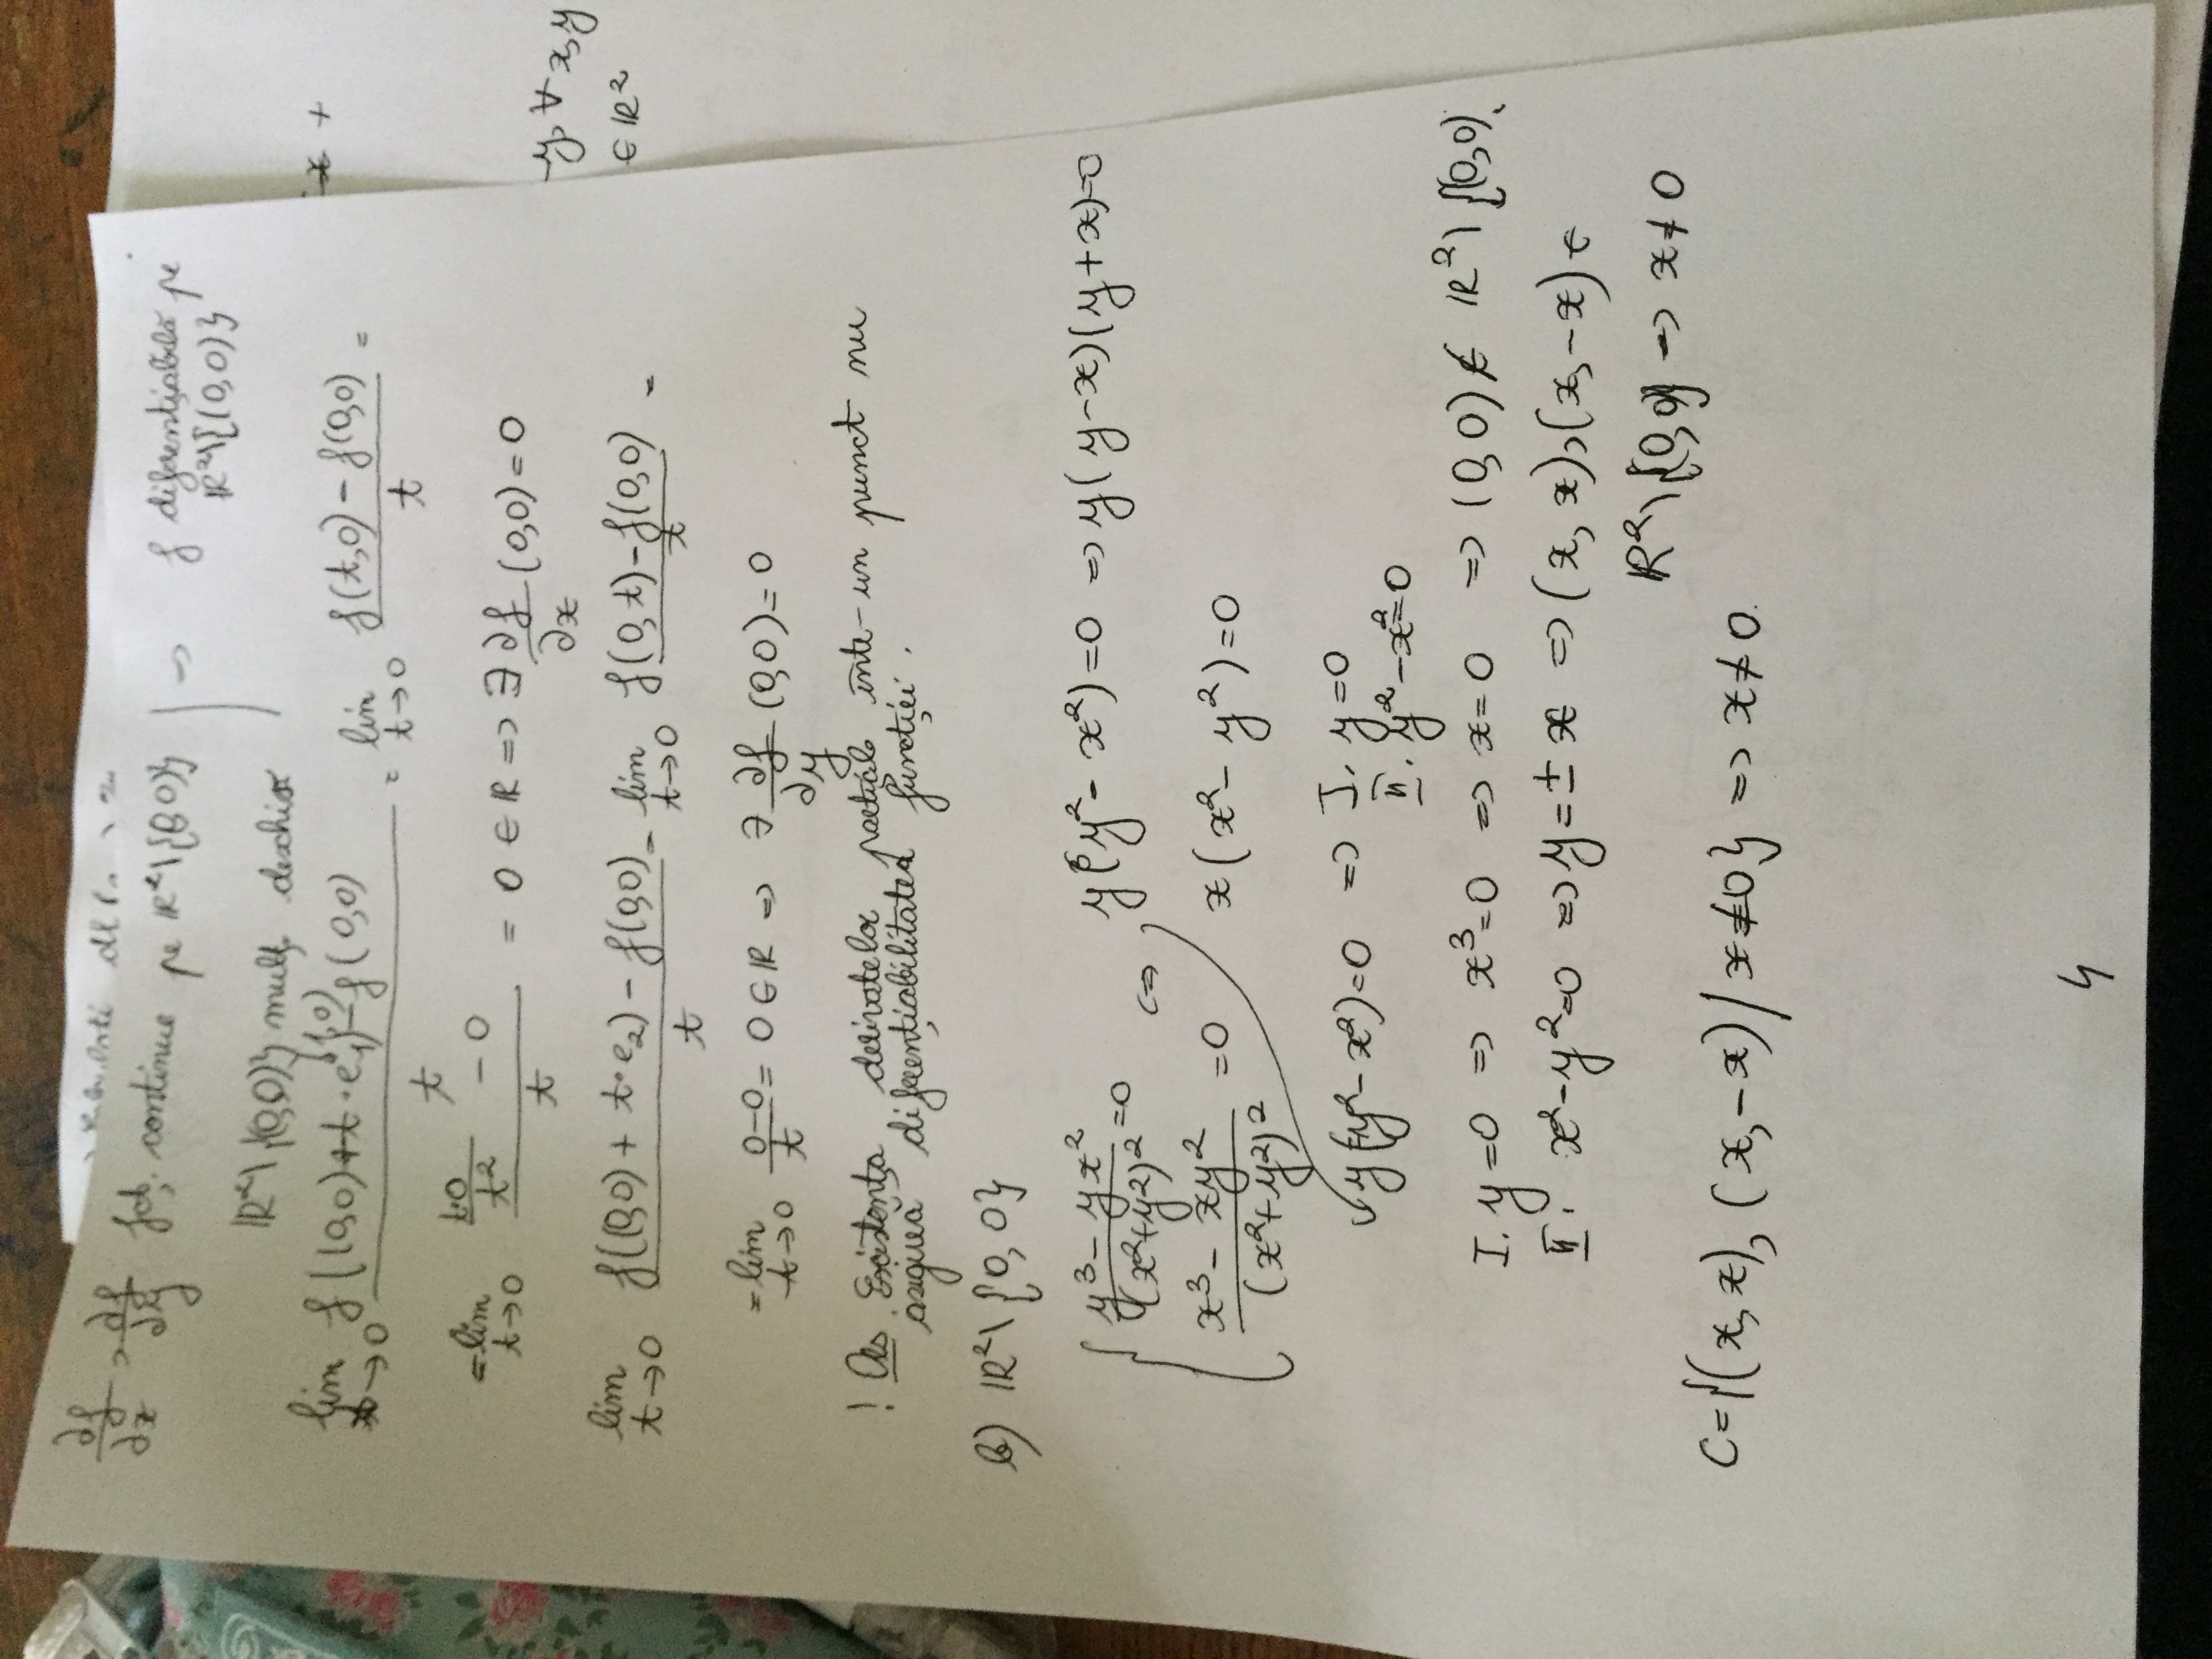 ∂f/∂x, ∂f/∂y fct. continue pe ℝ²\{(0,0)} | => f diferențiabilă pe ℝ²\{(0,0)}
ℝ²\{(0,0)} mulț. deschisă
lim t→0 (f((0,0)+t·e₁) - f(0,0))/t = lim t→0 (f(t,0) - f(0,0))/t =
(1,0)
= lim t→0 (t·0/t² - 0)/t = 0 ∈ ℝ => ∃ ∂f/∂x (0,0) = 0
lim t→0 (f((0,0) + t·e₂) - f(0,0))/t = lim t→0 (f(0,t) - f(0,0))/t =
= lim t→0 (0-0)/t = 0 ∈ ℝ => ∃ ∂f/∂y (0,0) = 0
! Obs. Existența derivatelor parțiale într-un punct nu
asigură diferențiabilitatea funcției.
b) ℝ²\{0,0}
{ (y³ - yx²)/(x²+y²)² = 0 <=> y(y² - x²) = 0 => y(y-x)(y+x)=0
(x³ - xy²)/(x²+y²)² = 0 x(x² - y²) = 0
y(y² - x²) = 0 => I. y=0
II. y² - x² = 0
I. y=0 => x³=0 => x=0 => (0,0) ∉ ℝ²\{(0,0)
II. x²-y²=0 => y=±x => (x,x),(x,-x) ∈
ℝ²\{0,0} => x≠0
C={(x,x),(x,-x)/x≠0} => x≠0.
4
x +
-y, ∀ x,y
∈ ℝ²